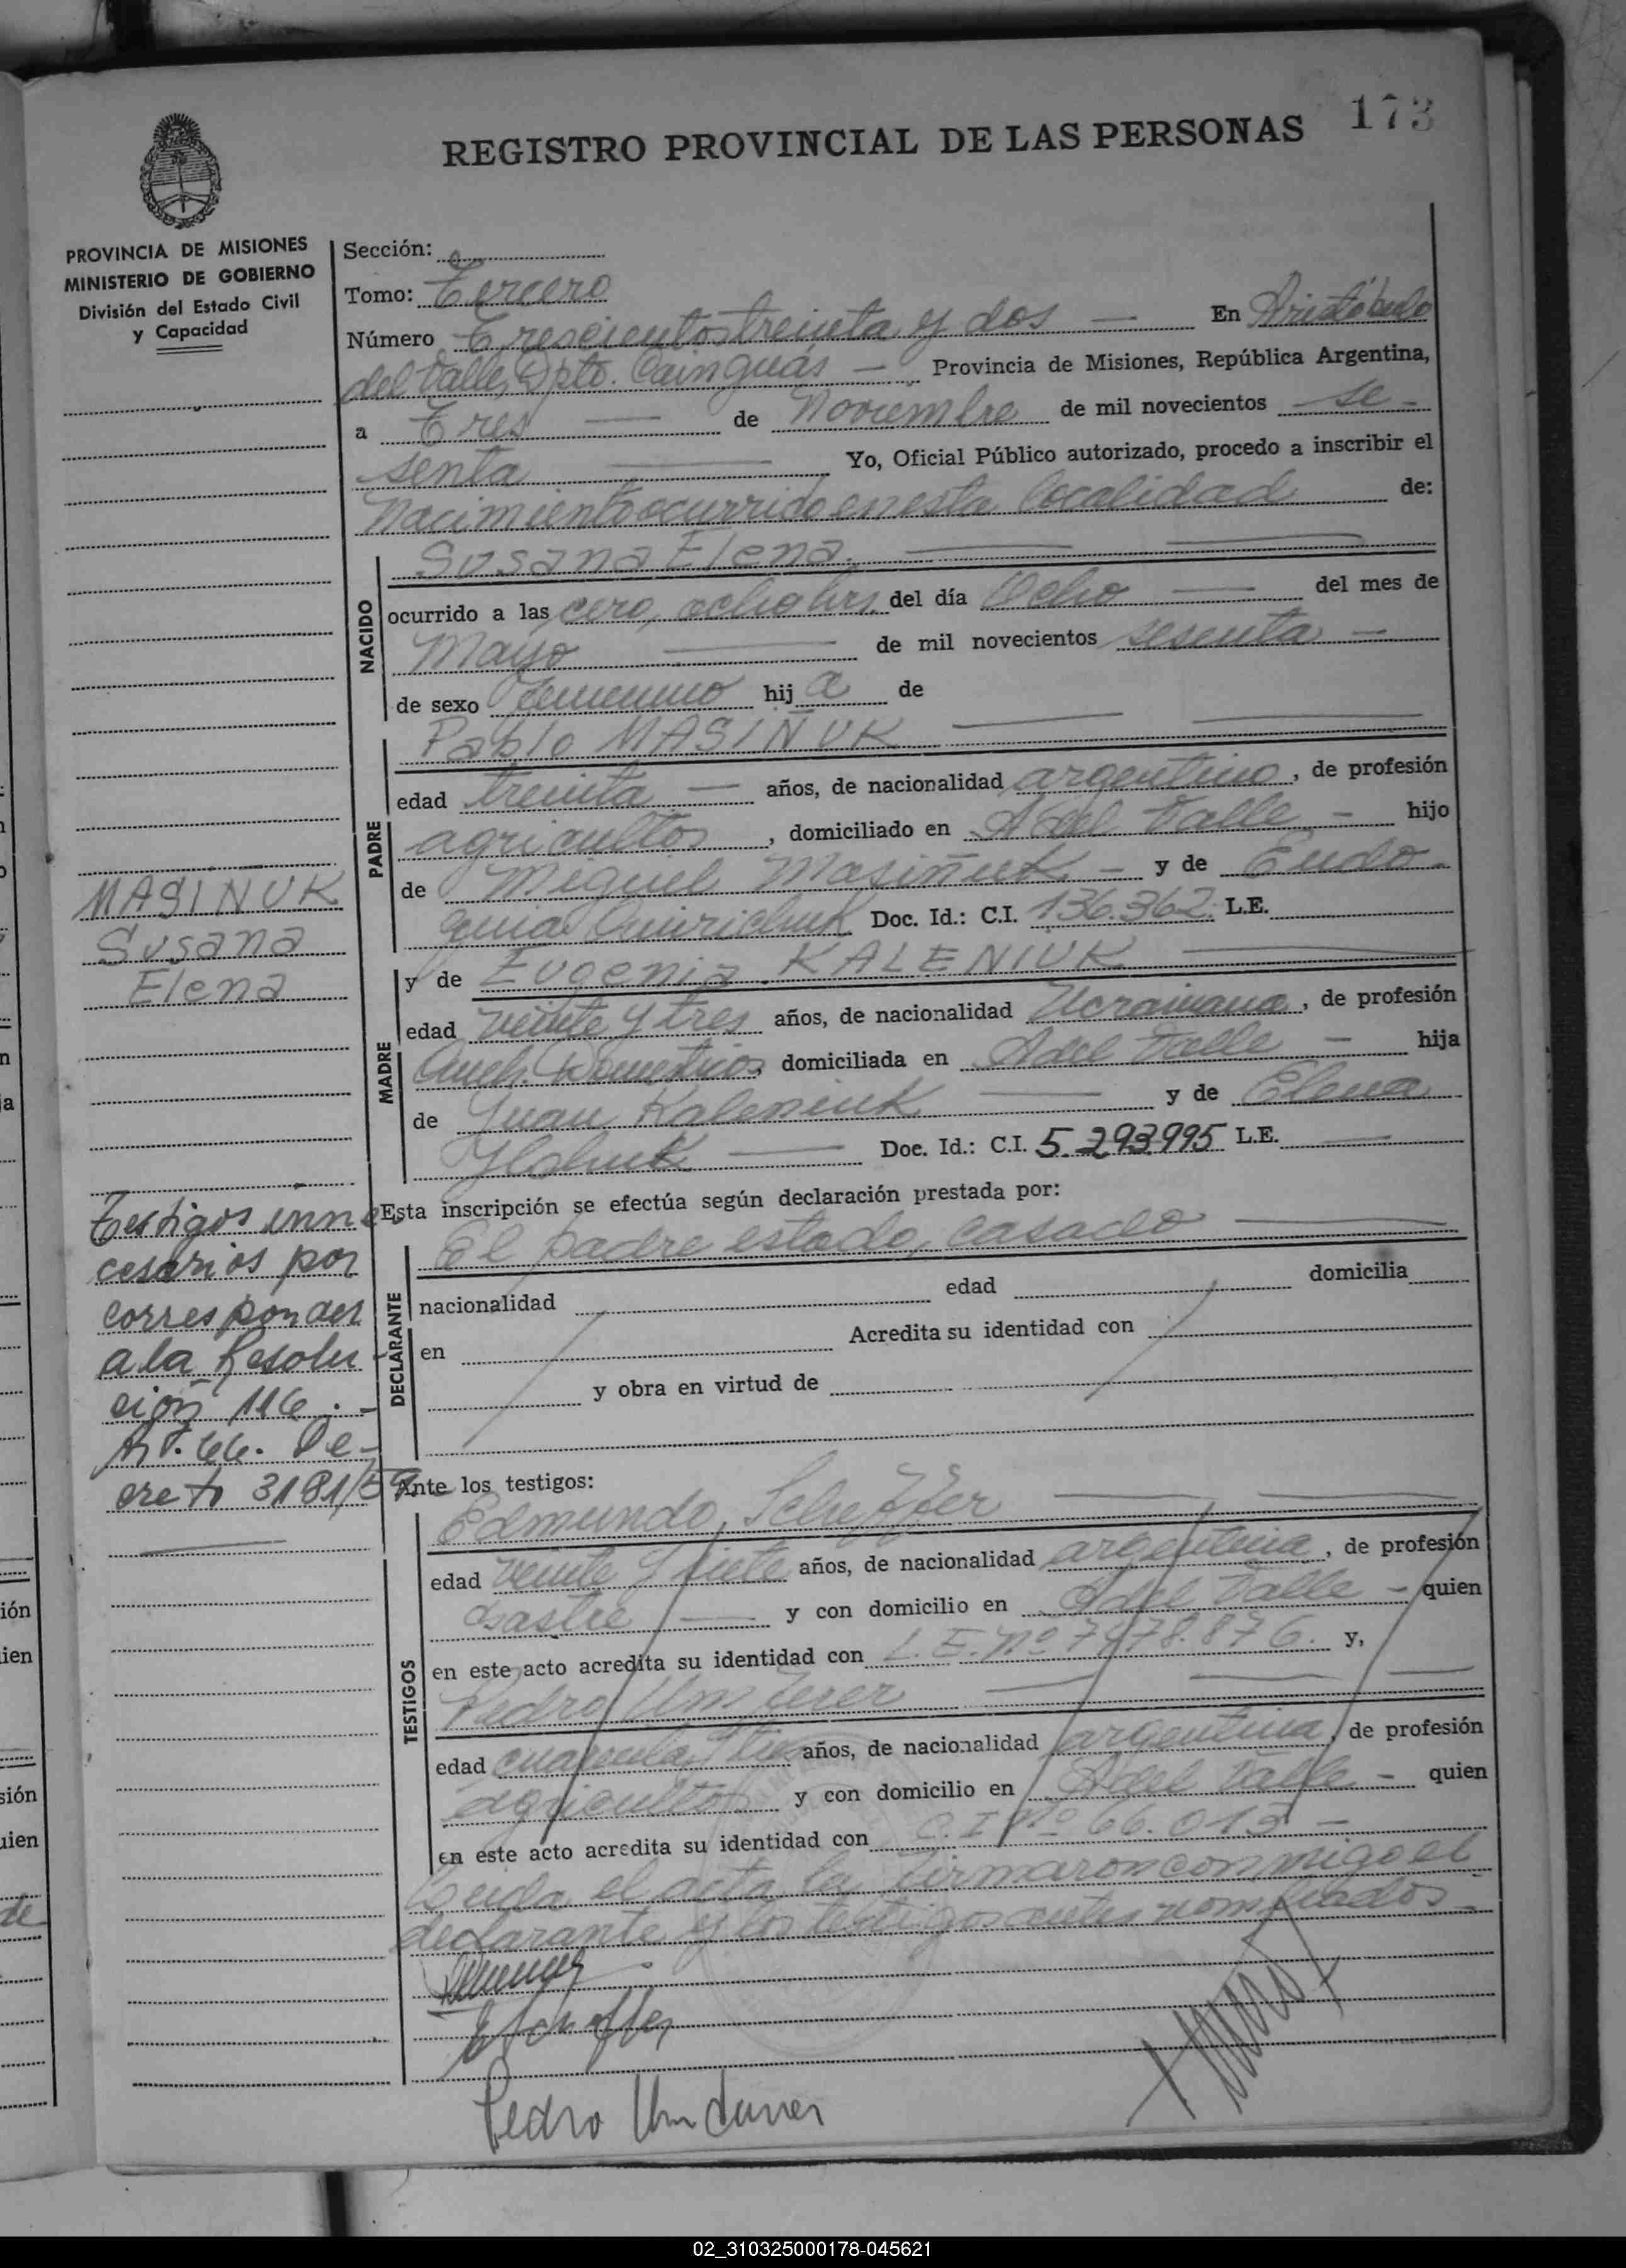 173
REGISTRO PROVINCIAL DE LAS PERSONAS
PROVINCIA DE MISIONES
MINISTERIO DE GOBIERNO
División del Estado Civil
y Capacidad
Sección:
Tomo: Tercero
Número Trescientos treinta y dos — En Aristóbulo
del Valle, Dpto. Cainguás — Provincia de Misiones, República Argentina,
a Tres — de Noviembre de mil novecientos se-
senta — Yo, Oficial Público autorizado, procedo a inscribir el
Nacimiento ocurrido en esta localidad de:
NACIDO
Susana Elena.
ocurrido a las cero, ocho hrs, del día Ocho — del mes de
Mayo — de mil novecientos sesenta —
de sexo femenino hij a de
PADRE
Pablo MASIÑUK
edad treinta — años, de nacionalidad argentino, de profesión
agricultor, domiciliado en A del Valle — hijo
de Miguel Masiñuk — y de Eudo-
quia Doc. Id.: C.I. 136.362. L.E.
MADRE
y de Eugenia KALENIUK
edad veinte y tres años, de nacionalidad Ucraniana, de profesión
Queh. Domésticos, domiciliada en A del Valle — hija
de Juan Kaleniuk — y de Elena
Doc. Id.: C.I. 5.293.995 L.E.
MASIÑUK
Susana
Elena
Testigos inne
cesarios por
corresponder
a la Resolu-
ción 116.-
Art. 66. De-
creto 3181/59.
Esta inscripción se efectúa según declaración prestada por:
DECLARANTE
El padre estado, casado
nacionalidad edad domicilia
en Acredita su identidad con
y obra en virtud de
Ante los testigos:
TESTIGOS
Edmundo Scheffer
edad veinte y siete años, de nacionalidad argentina, de profesión
Sastre — y con domicilio en A del Valle — quien
en este acto acredita su identidad con L.E. Nº 7478.876. y,
Pedro
edad cuarenta años, de nacionalidad argentina, de profesión
agricultor y con domicilio en A del Valle — quien
en este acto acredita su identidad con C. I Nº 66.013 —
Leida el acta la firmaron conmigo el
declarante y los testigos antes nombrados
Pedro
02_310325000178-045621